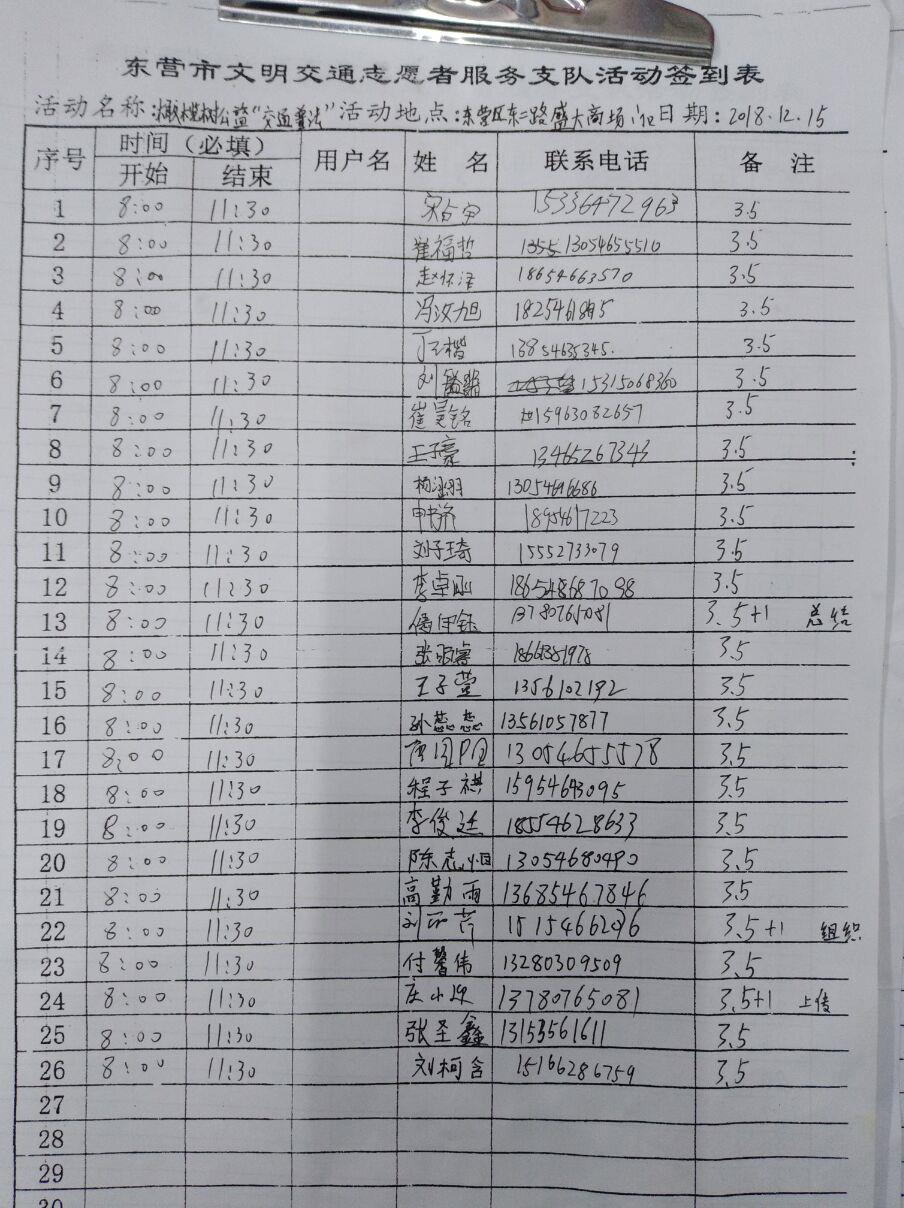 东营市文明交通志愿者服务支队活动签到表
活动名称:橄榄树公益“交通普法” 活动地点:东营区东二路盛大商场门口 日期:2018.12.15
序号 时间(必填) 用户名 姓 名 联系电话 备 注
开始 结束
1 8:00 11:30 15336472963 3.5
2 8:00 11:30 崔福哲 13054655510 3.5
3 8:00 11:30 赵怀泽 18654663570 3.5
4 8:00 11:30 冯汝旭 3.5
5 8:00 11:30 丁玉楷 13854635345. 3.5
6 8:00 11:30 刘 15315068360 3.5
7 8:00 11:30 崔曼铭 15963082657 3.5
8 8:00 11:30 王子豪 13465267343 3.5
9 8:00 11:30 3.5
10 8:00 11:30 18954617223 3.5
11 8:00 11:30 刘子琦 15552733079 3.5
12 8:00 11:30 李卓刚 186548687098 3.5
13 8:00 11:30 13780765081 3.5+1 总结
14 8:00 11:30 3.5
15 8:00 11:30 王子萱 1356102192 3.5
16 8:00 11:30 孙蕊蕊 13561057877 3.5
17 8:00 11:30 13054655578 3.5
18 8:00 11:30 程子祺 15954643095 3.5
19 8:00 11:30 李俊廷 18554628633 3.5
20 8:00 11:30 陈志恒 13054680490 3.5
21 8:00 11:30 高勤雨 13685467846 3.5
22 8:00 11:30 3.5+1 组织
23 8:00 11:30 付馨伟 13280309509 3.5
24 8:00 11:30 庄小坤 13780765081 3.5+1 上传
25 8:00 11:30 张圣鑫 13153561611 3.5
26 8:00 11:30 刘柯含 15166286759 3.5
27
28
29
30